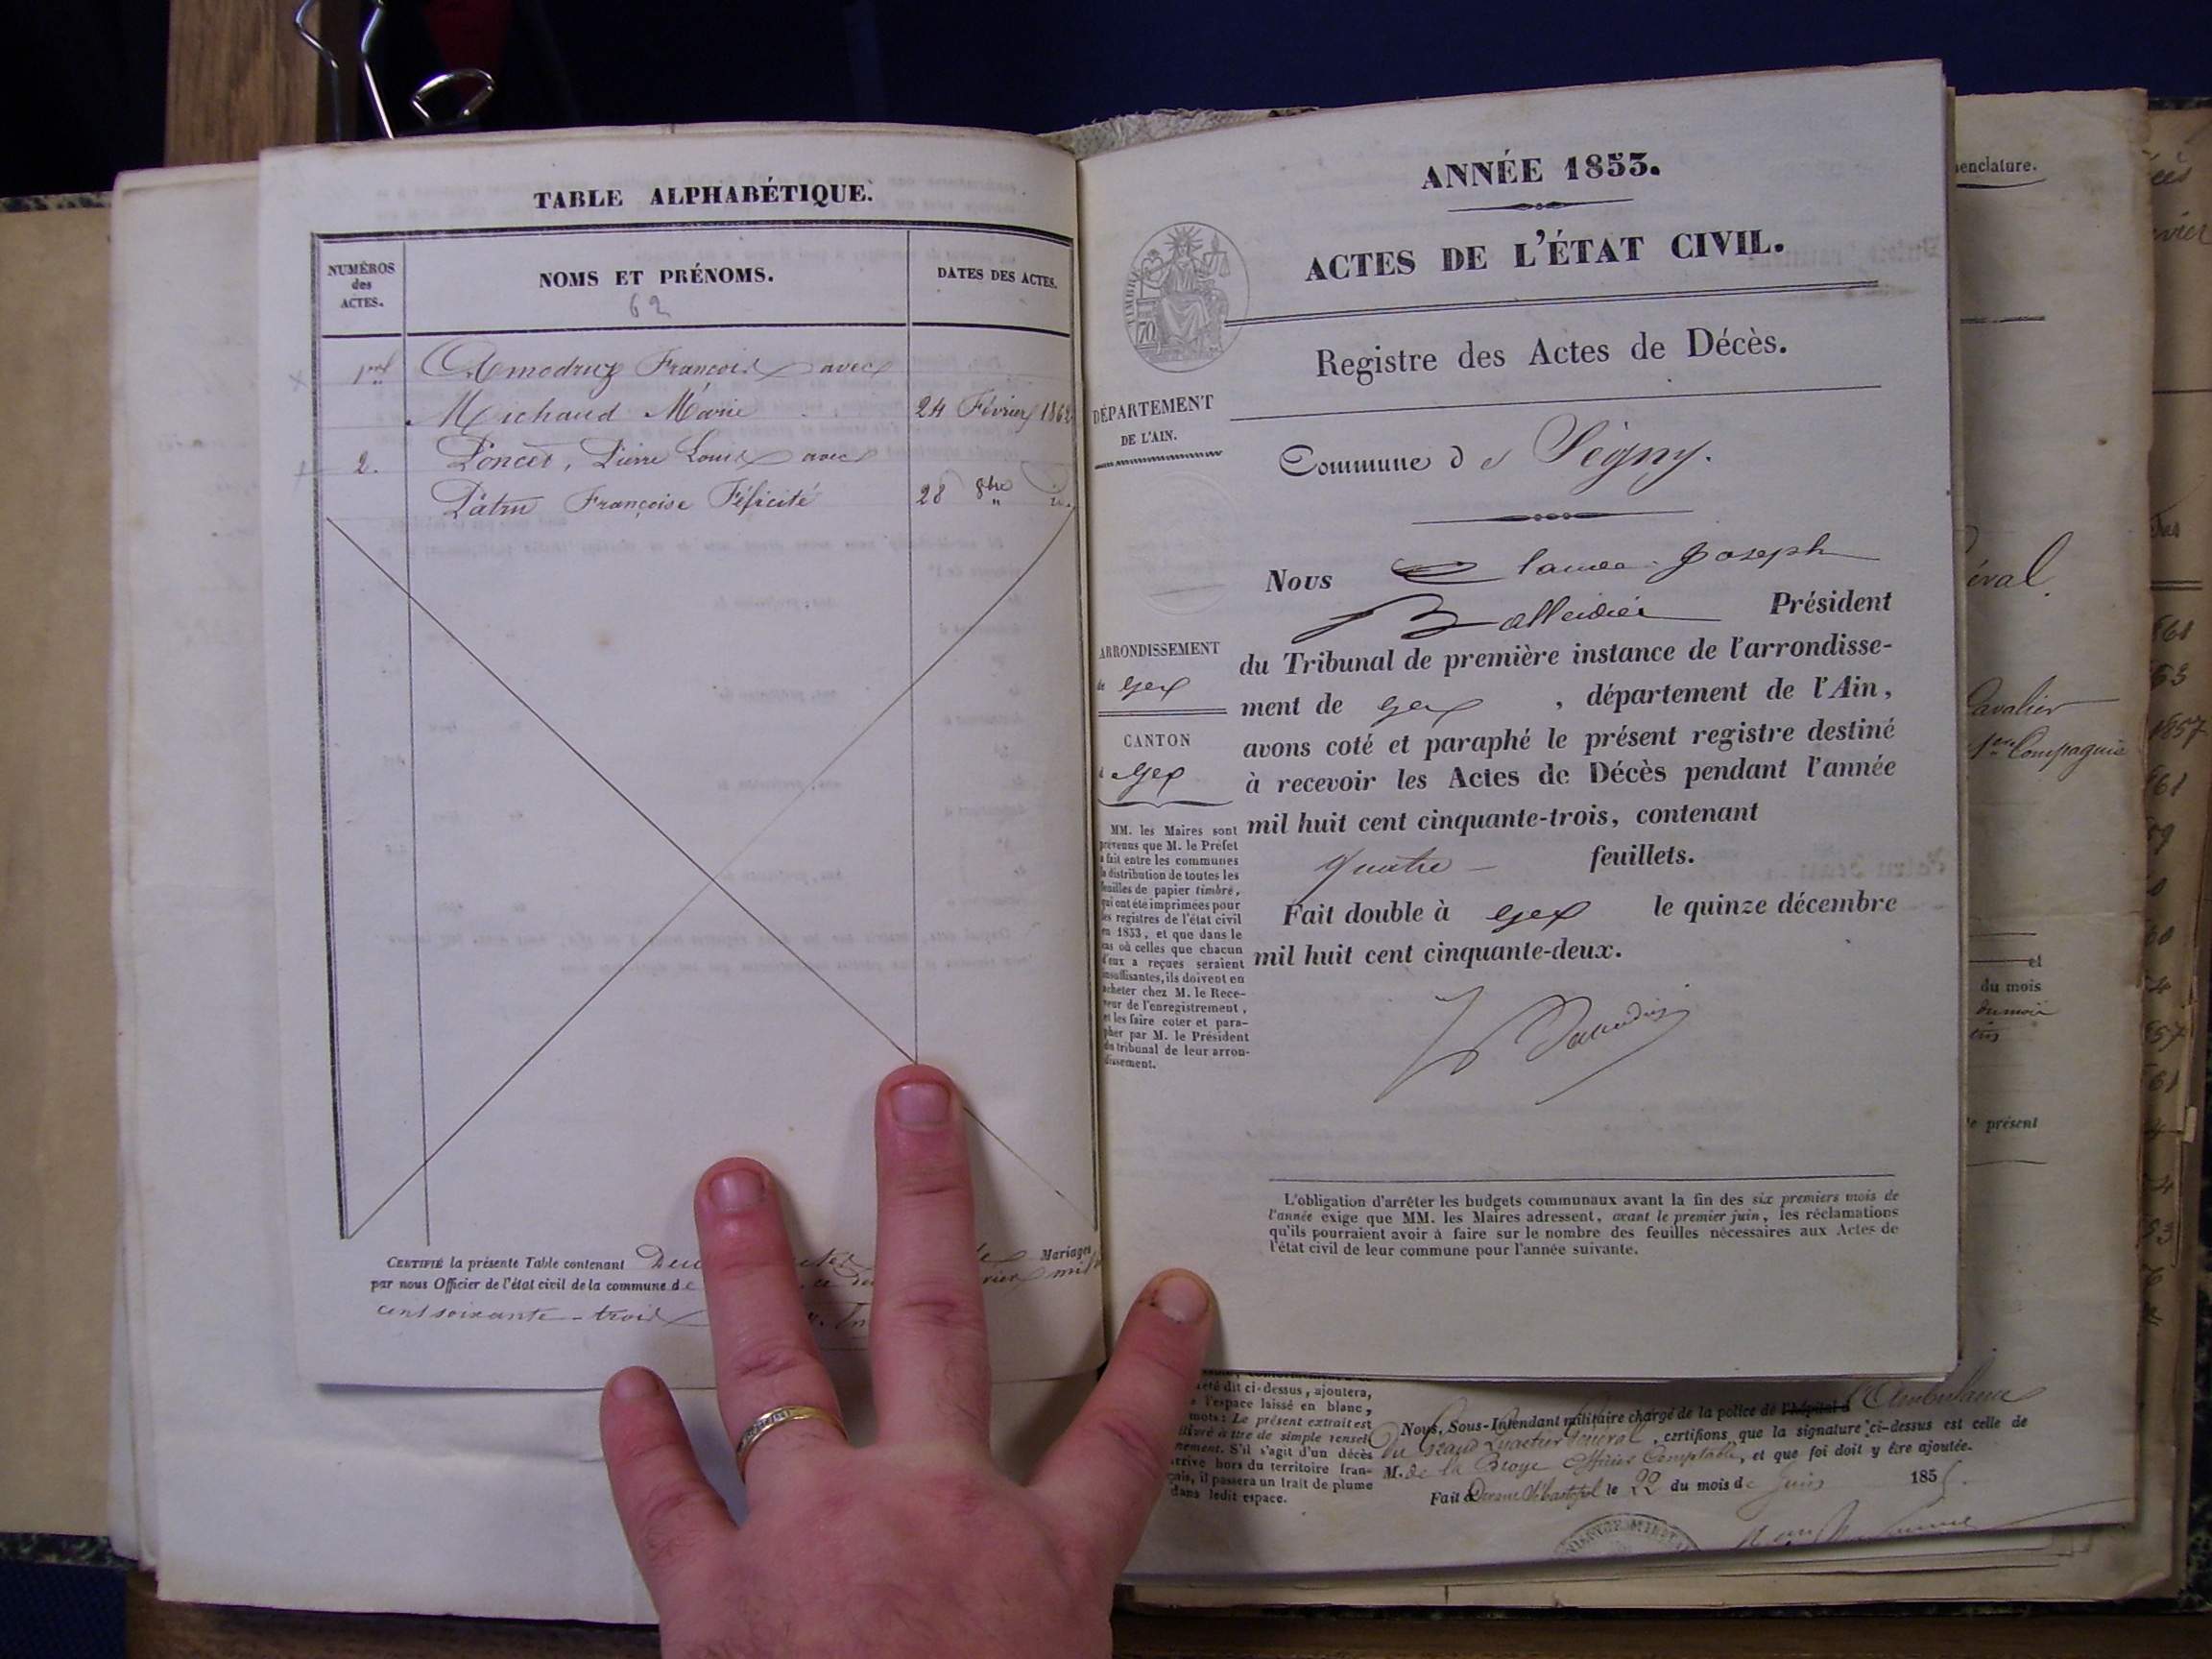 TABLE ALPHABÉTIQUE.
NUMÉROS
des
ACTES.
NOMS ET PRÉNOMS.
62
DATES DES ACTES.
Amodruz François avec
Michaud Marie
24 Février 1862
2.
Poncet, Pierre Louis avec
Patru Françoise Félicité
28 8bre
CERTIFIÉ la présente Table contenant
Mariages
par nous Officier de l'état civil de la commune de
mil
cent soixante-trois
ANNÉE 1853.
ACTES DE L'ÉTAT CIVIL.
TIMBRE
70
Registre des Actes de Décès.
DÉPARTEMENT
DE L'AIN.
Commune de Ségny.
Nous Claude Joseph
Balleidier Président
ARRONDISSEMENT
de Gex
CANTON
de Gex
du Tribunal de première instance de l'arrondisse-
ment de Gex, département de l'Ain,
avons coté et paraphé le présent registre destiné
à recevoir les Actes de Décès pendant l'année
mil huit cent cinquante-trois, contenant
quatre feuillets.
Fait double à Gex le quinze décembre
mil huit cent cinquante-deux.
MM. les Maires sont
prévenus que M. le Préfet
a fait entre les communes
la distribution de toutes les
feuilles de papier timbré,
qui ont été imprimées pour
les registres de l'état civil
en 1853, et que dans le
cas où celles que chacun
d'eux a reçues seraient
insuffisantes, ils doivent en
acheter chez M. le Rece-
veur de l'enregistrement,
et les faire coter et para-
pher par M. le Président
du tribunal de leur arron-
dissement.
L'obligation d'arrêter les budgets communaux avant la fin des six premiers mois de
l'année exige que MM. les Maires adressent, avant le premier juin, les réclamations
qu'ils pourraient avoir à faire sur le nombre des feuilles nécessaires aux Actes de
l'état civil de leur commune pour l'année suivante.
Cavalier
1ere Compagnie
du mois
présent
été dit ci-dessus, ajoutera,
l'espace laissé en blanc,
mots: Le présent extrait est
délivré à titre de simple rensei-
gnement. S'il s'agit d'un décès
arrivé hors du territoire fran-
çais, il passera un trait de plume
dans ledit espace.
Nous, Sous-Intendant militaire chargé de la police de l'hôpital d l'Ambulance
du Grand Quartier Général, certifions que la signature ci-dessus est celle de
M. de la Broye Officier Comptable, et que foi doit y être ajoutée.
Fait à Devant Sébastopol le 22 du mois de Juin 1855.